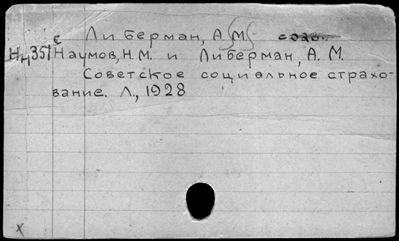 с
Либерман, А. М. соав.
Нч351 Наумов, Н.М. и Либерман, А. М.
Советское социальное страхо-
вание. Л., 1928
x